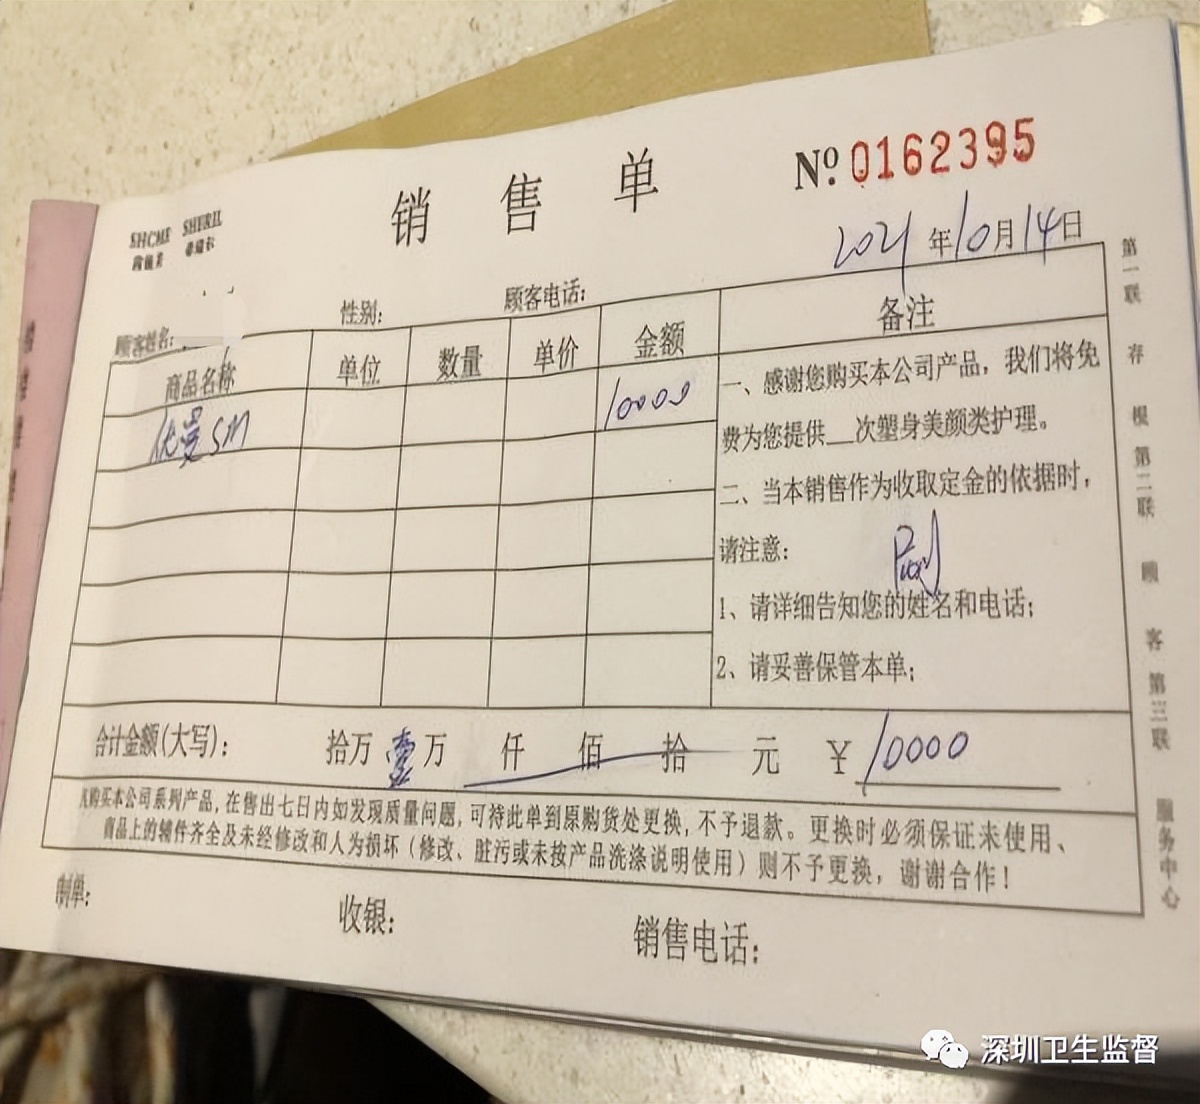 销售单
№ 0162395
SHCME SHERIL
2021年10月14日
顾客姓名: 性别: 顾客电话:
商品名称 单位 数量 单价 金额 备注
优曼SM 10000
一、感谢您购买本公司产品，我们将免
费为您提供__次塑身美颜类护理。
二、当本销售作为收取定金的依据时，
请注意：
刷
1、请详细告知您的姓名和电话；
2、请妥善保管本单；
合计金额(大写)： 拾万 壹万 仟 佰 拾 元 ￥10000
凡购买本公司系列产品，在售出七日内如发现质量问题，可持此单到原购货处更换，不予退款。更换时必须保证未使用、
商品上的辅件齐全及未经修改和人为损坏（修改、脏污或未按产品洗涤说明使用）则不予更换，谢谢合作！
制单： 收银： 销售电话：
第一联 存根 第二联 顾客 第三联 服务中心
深圳卫生监督